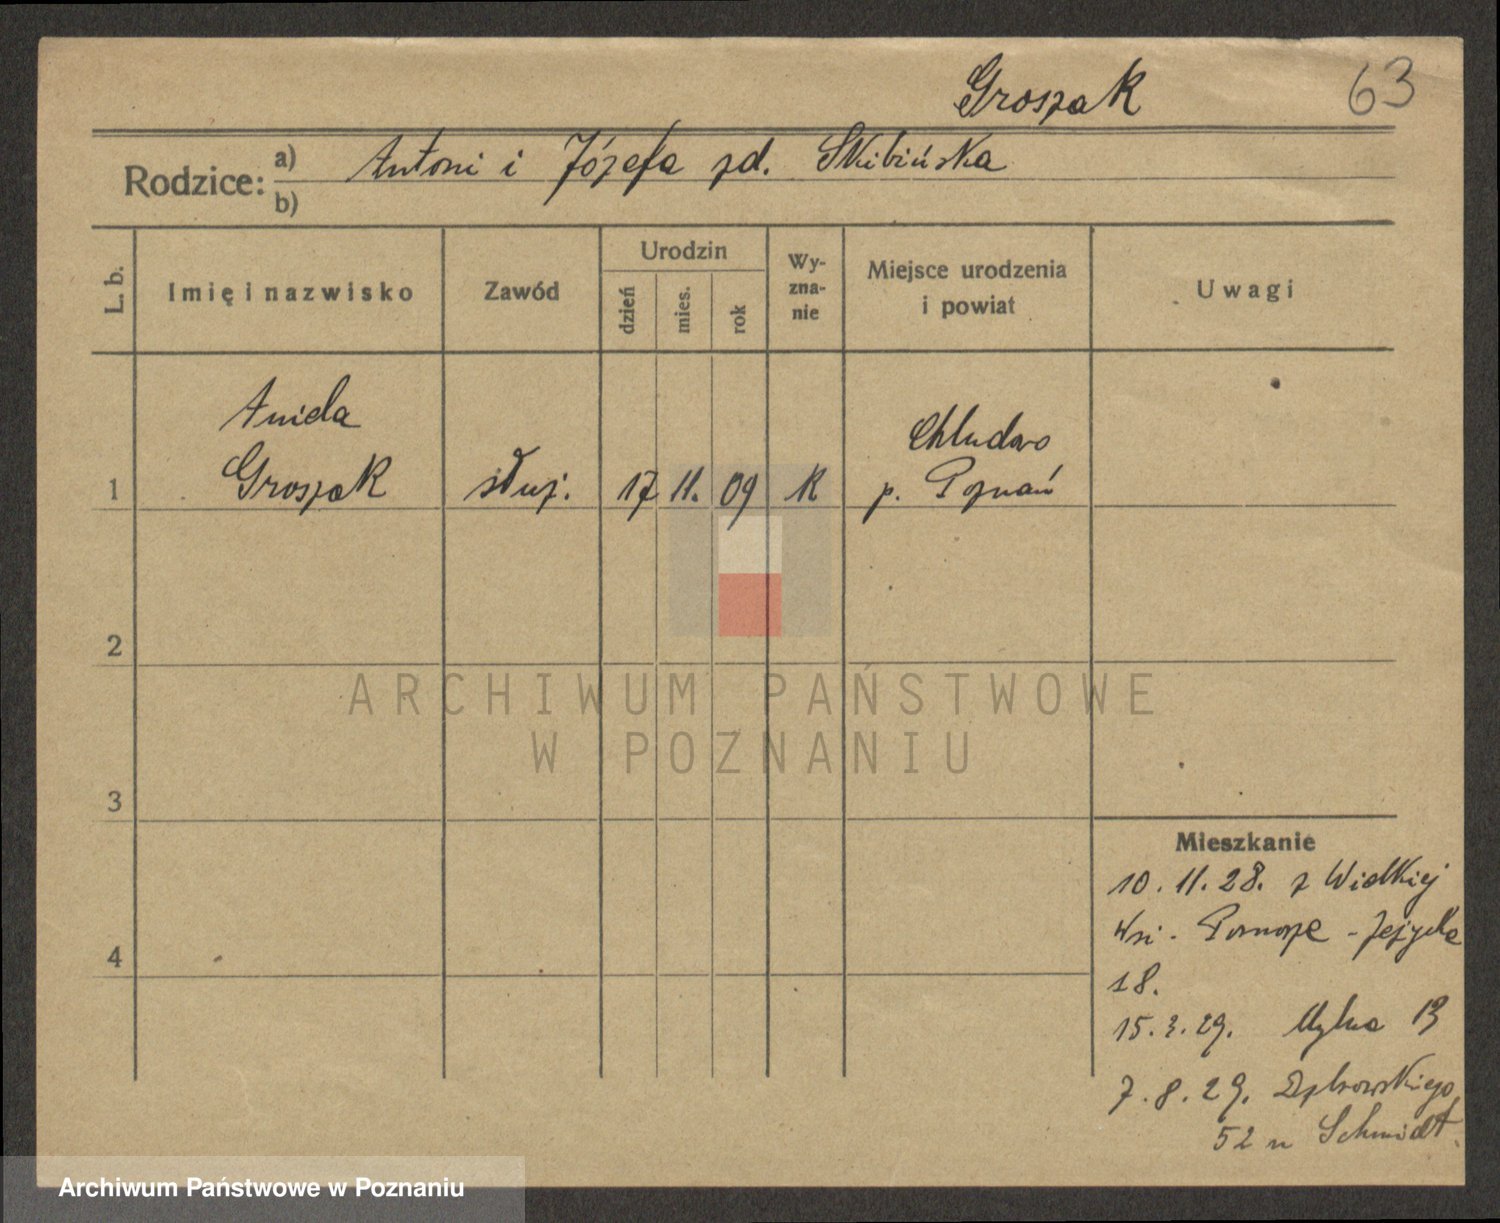 Groszak 63
Rodzice: a) Antoni i Józefa zd. Skibińska
b)
L. b. Imię i nazwisko Zawód Urodzin dzień mies. rok Wy-zna-nie Miejsce urodzenia i powiat Uwagi
Aniela Chludowo
1 Groszak służ. 17 11. 09 K p. Poznań
2
ARCHIWUM PAŃSTWOWE
W POZNANIU
3
Mieszkanie
10. 11. 28. z Wielkiej
4 Wsi - - Jeżycka
18.
15. 3. 29. Mylna
7. 8. 29. Dąbrowskiego
52 u Schmidt.
Archiwum Państwowe w Poznaniu